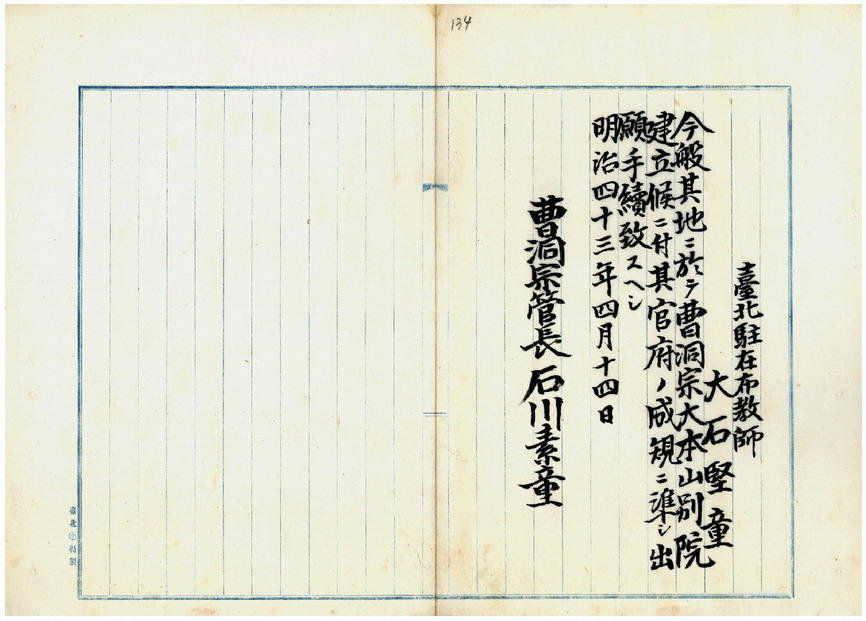 134
臺北駐在布教師
大石堅童
今般其地ニ於テ曹洞宗大本山別院
建立候ニ付其官府ノ成規ニ準シ出
願手續致スヘシ
明治四十三年四月十四日
曹洞宗管長 石川素童
臺北 特製